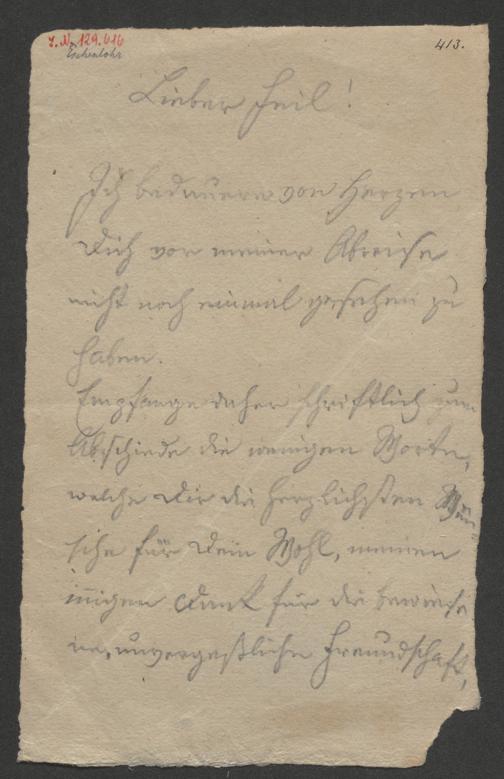 I. N. 129.616
Eschenlohr
413.
Lieber Feil!
Ich bedauere von Herzen
Dich vor meiner Abreise
nicht noch einmal gesehen zu
haben.
Empfange daher schriftlich zum
Abschiede die wenigen Worte,
welche Dir die herzlichsten Wün
sche für Dein Wohl, meinen
innigen Dank für die bewiese
ne, unvergeßliche Freundschaft,